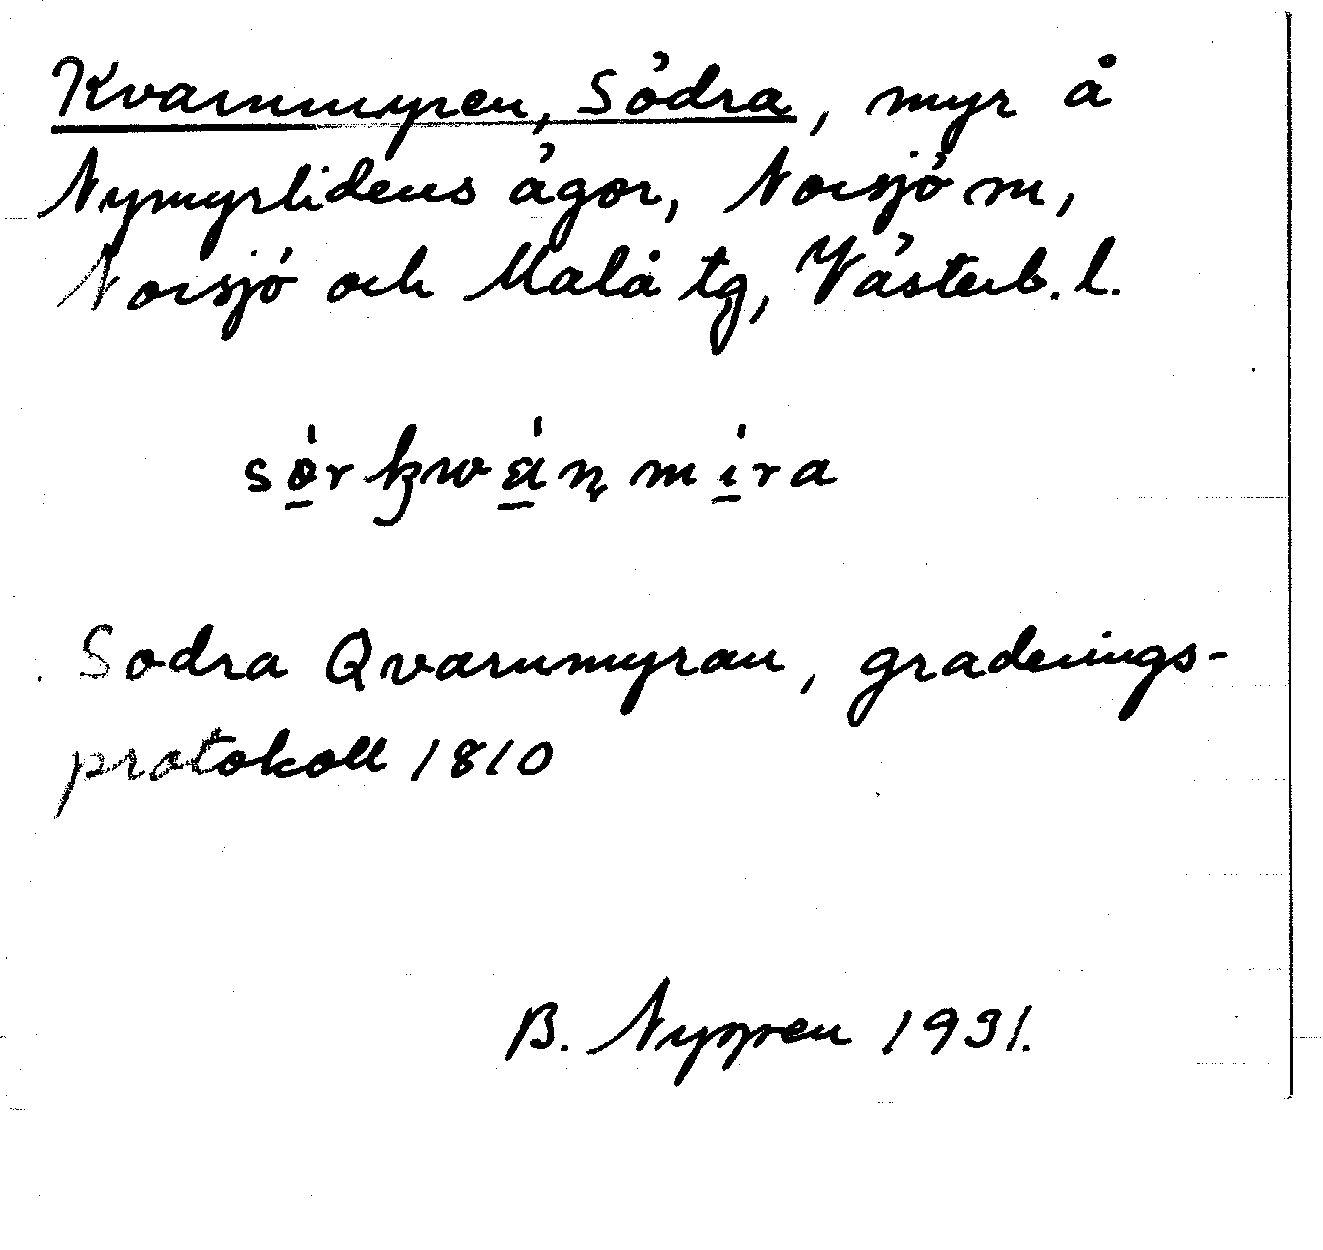 Kvarnmyren, Södra, myr å
Nymyrlidens ägor, Norsjö sn,
Norsjö och Malå tg, Västerb. l.
sörkwäɳ mira
Södra Qvarnmyran, graderings-
protokoll 1810
B. Nygren 1931.